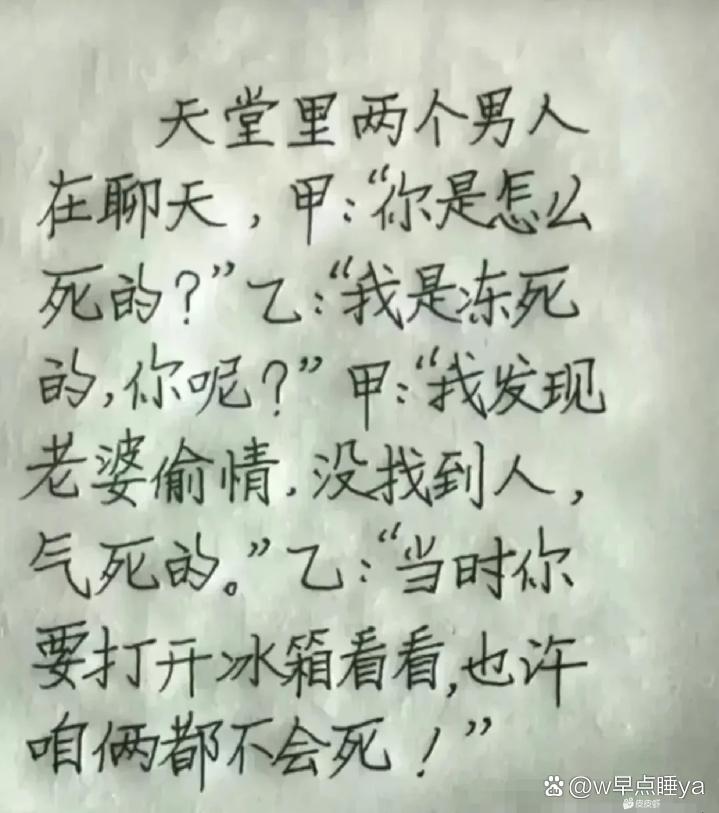 天堂里两个男人
在聊天，甲：“你是怎么
死的？”乙：“我是冻死
的，你呢？”甲：“我发现
老婆偷情，没找到人，
气死的。”乙：“当时你
要打开冰箱看看，也许
咱俩都不会死！”
@w早点睡ya
皮皮虾